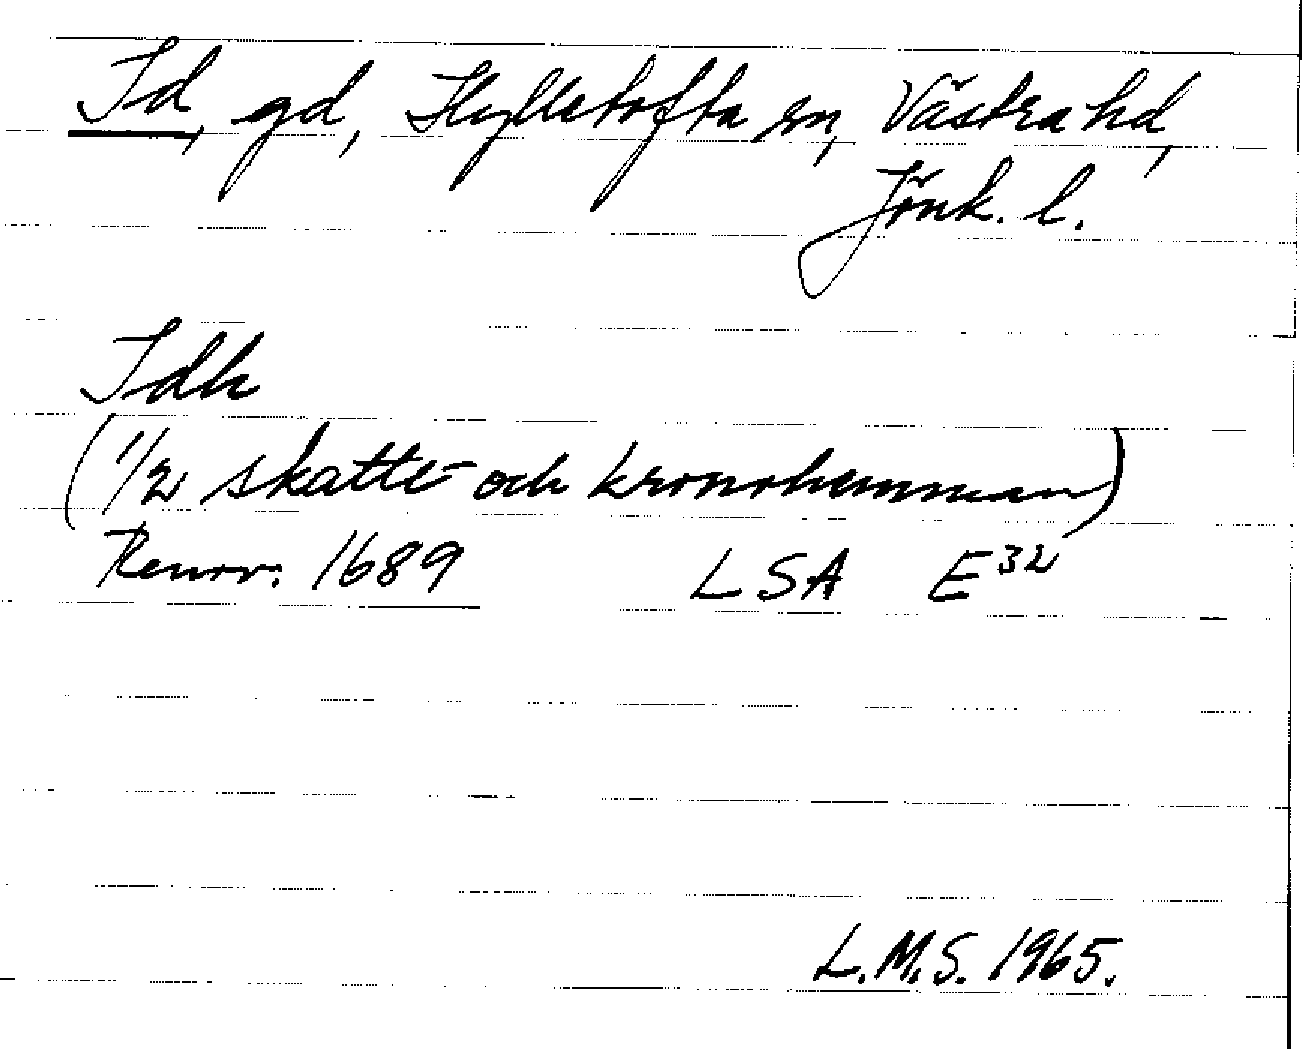 Id, gd, Hylletofta sn, Västra hd,
Jönk. l.
Idh
(1/2 skatte- och kronohemman)
Renov. 1689 LSA E32
L.M.S. 1965.